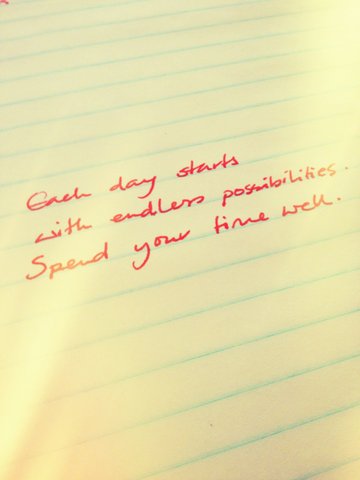 Each day starts
with endless possibilities.
Spend your time well.